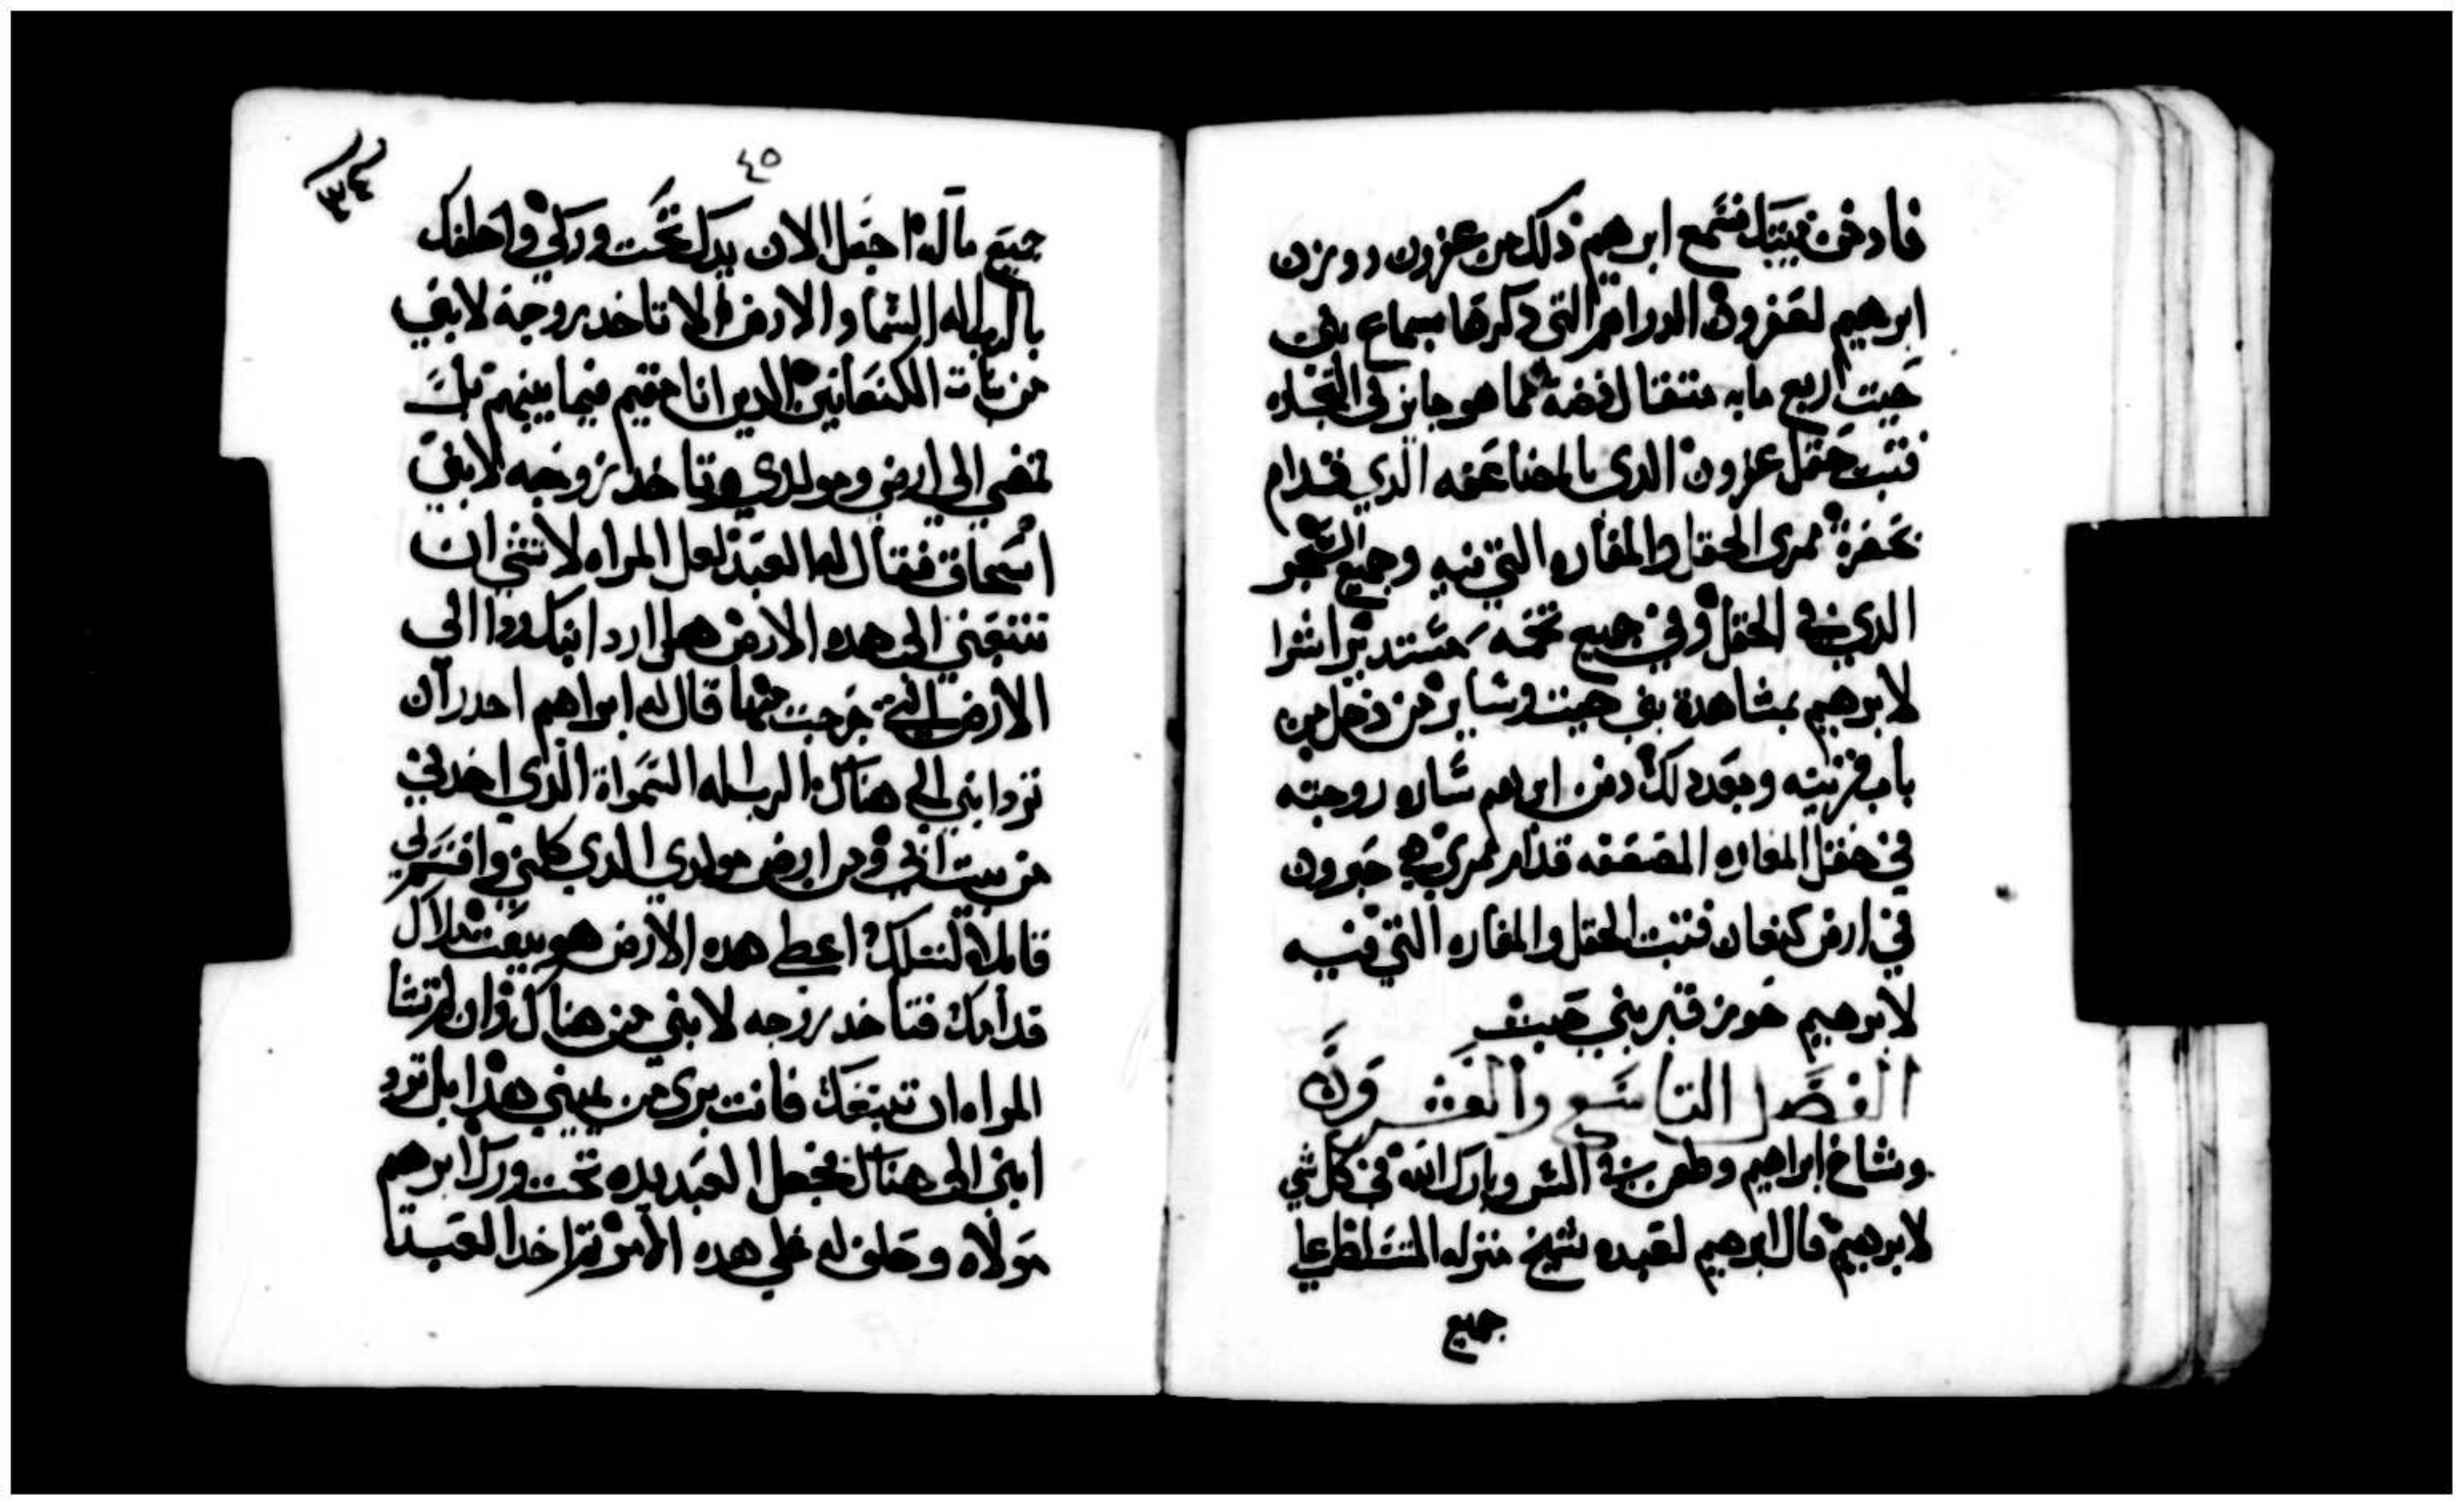 فادفن ميتك فسمع ابرهيم ذلك من عفرون ووزن
ابرهيم لعفرون الدراهم التي دكرها بسماع بني
حيت اربع مايه متقال فضه مما هو جايز في التجاره
فتبت حقل عفرون الدي بالمضاعفه الدي قدام
بحضرة ممرى الحقل والمغاره التي فيه وجميع الشجر
الدي في الحقل وفي جميع تخمه مستديرا شرا
لابرهيم بمشاهدة بني حيت وساير من دخل من
باب قريته وبعد دلك دفن ابرهيم ساره زوجته
في حقل المغاره المضعفه قدام ممرى هي حبرون
في ارض كنعان فتبت الحقل والمغاره التي فيه
لابرهيم حوز قبر بني حيت
الفصل التاسع والعشرون
وشاخ ابراهيم وطعن في السن وبارك الله في كل شي
لابرهيم قال ابرهيم لعبده شيخ منزله المتسلط علي
جميع
٤٥
جميع ماله اجعل الان يدك تحت وركي واحلفك
بالرب اله السما والارض الا تاخد زوجة لابني
من بنات الكنعانين الدين انا مقيم فيما بينهم بل
تمضي الى ارضي ومولدي وتاخد زوجه لابني
اسحاق فقال له العبد لعل المراه لا تشي ان
تتبعني الى هده الارض هل ارد ابنك ردا الى
الارض التي خرجت منها قال له ابراهم احدر ان
ترد ابني الى هناك الرب اله السمواة الدي اخدني
من بيت ابي ومن ارض مولدي الدي كلمني واقسم لي
قايلا لنسلك اعطي هده الارض هو يبعت ملاك
قدامك فتاخد زوجه لابني من هناك وان لم تشا
المراه ان تتبعك فانت بري من يميني هدا بل ترد
ابني الى هناك فجعل العبد يده تحت ورك ابرهم
مولاه وحلف له علي هده الامر تم اخد العبد